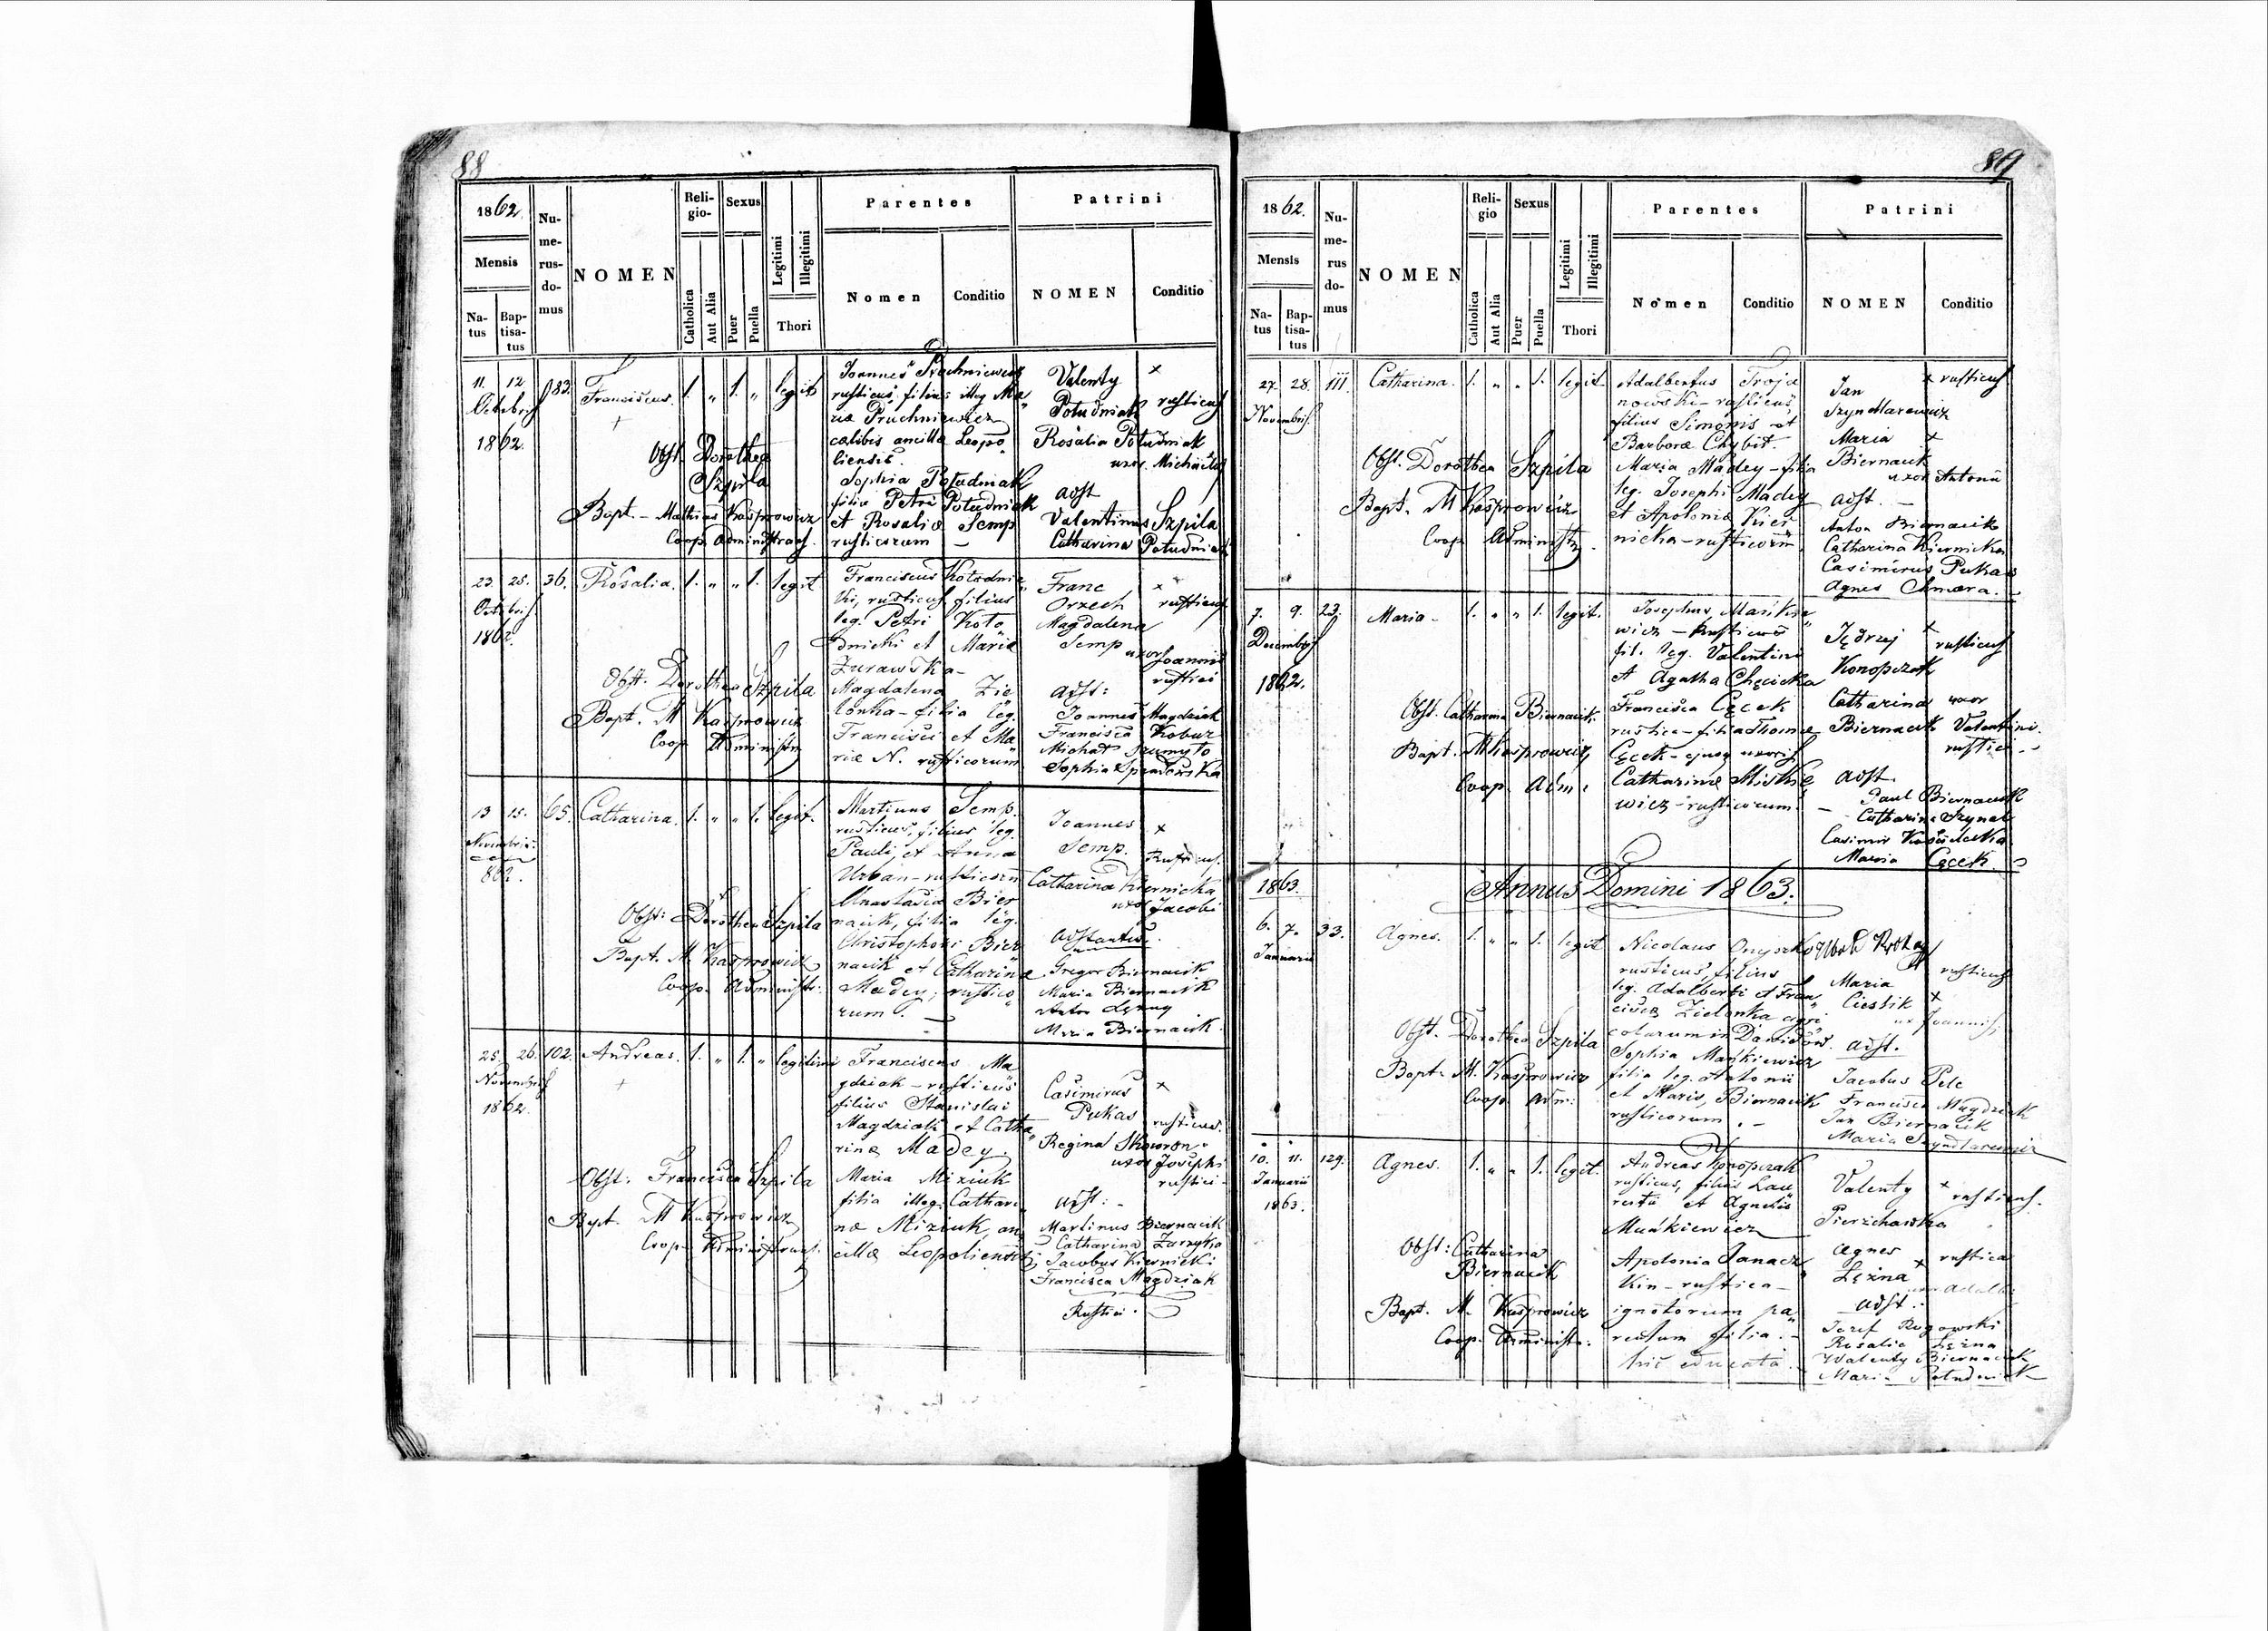 88
1862.
Mensis
Na-
tus
Bap-
tisa-
tus
Nu-
me-
rus-
do-
mus
NOMEN
Reli-
gio-
Catholica
Aut Alia
Sexus
Puer
Puella
Legitimi
Illegitimi
Thori
Parentes
Nomen
Conditio
Patrini
NOMEN
Conditio
11. 12
Octobris
1862.
83.
Franciscus.
+
1. „ 1. „ legit
Obst. Dorothea
Szpila
Bapt. - Mathias Kasprowicz
Coop. Administrans.
Joannes Pruchniewicz
rusticus, filius illeg Ma„
riæ Pruchniewicz
cælibis ancillæ Leopo„
liensis.
Sophia Południak
filia Petri Południak
et Rosaliæ Semp
rusticorum —
Valenty ×
Południak rusticus
Rosalia Południak
uxor Michaelis
adst
Valentinus Szpila
Catharina Południak
23. 25. 36. Rosalia. 1. „ „ 1. legit
Octobris
1862.
Obst. Dorothea Szpila
Bapt. M Kasprowicz
Coop Administr
Franciscus Kołodnic„
ki, rusticus filius
leg. Petri Koło
dnicki et Mariæ
Żurawska-
Magdalena Zie
lonka - filia leg.
Francisci et Ma„
riæ N. rusticorum
Franc ×
Orzech rusticus
Magdalena
Semp uxor Joannis
rustici
adst:
Joannes Magdziak
Francisca Kobuz
Michał Szumyło
Sophia
13 15. 65. Catharina. 1. „ „ 1. legit.
Novembris
862.
Obst: Dorothea Szpila
Bapt. M Kasprowicz
Coop. Administr:
Martinus Semp.
rusticus, filius leg.
Pauli, et Anna
Urban - rusticorum
Anastasia Bier
nacik, filia leg.
Christophori Bier
nacik et Catharinæ
Madey; rustico„
rum. —
Joannes ×
Semp. Rusticus.
Catharina Kiernicka
uxor Jacobi
Adstantes.
Gregor Biernacik
Maria Biernacik
Anton Lęzny
Maria Biernacik.
25. 26. 102. Andreas. 1. „ 1. „ legitimi
Novembris
1862.
+
Obst: Francisca Szpila
Bapt. M Kasprowicz
Coop. Administrans.
Franciscus Ma
gdziak - rusticus
filius Stanislai
Magdziak et Catha„
rinæ Madey.
Maria Miziuk
filia illeg. Cathari„
næ Miziuk, an
cillæ Leopoliensis
Casimirus ×
Pukas rusticus.
Regina Skowron-
uxor Josephi
rustici -
adst: -
Martinus Biernacik
Catharina Zarzyka
Jacobus Kiernicki
Francisca Magdziak
Rustici.
89
1862.
Mensis
Na-
tus
Bap-
tisa-
tus
Nu-
me-
rus
do-
mus
NOMEN
Reli-
gio
Catholica
Aut Alia
Sexus
Puer
Puella
Legitimi
Illegitimi
Thori
Parentes
Nomen
Conditio
Patrini
NOMEN
Conditio
27. 28. 111. Catharina. 1. „ „ 1. legit.
Novembris.
Obst. Dorothea Szpila
Bapt. M Kasprowicz
Coop Administr.
Adalbertus Troja
nowski - rusticus,
filius Simonis et
Barbaræ Chybit.
Maria Madey - filia
leg. Josephi Madey
et Apolonia Kier
nicka - rusticorum
Jan × rusticus
Szyndlarewicz
Maria ×
Biernacik
uxor Antonii
adst. —
Anton Biernacik
Catharina Kiernicka
Casimirus Pukas
Agnes Chmara.
7. 9. 23. Maria - 1. „ „ 1. legit.
Decembris
1862.
Obst. Catharina Biernacik.
Bapt. M Kasprowicz
Coop. Adm.
Josephus, Mańkie„
wicz - Rusticus
fil. leg. Valentini
et Agatha Chęcicka
Francisca Cęcek
rustica - filia Thomæ
Cęcek - ejusq uxoris
Catharinæ Miśkie
wicz - rusticorum.
Jędrzej ×
rusticus
Konopczak
Catharina uxor
Biernacik Valentini.
rustici -
adst.
Paul Biernacik
Catharina Szynal
Casimir
Maria Cęcek.
1863. Annus Domini 1863.
6. 7. 33. Agnes. 1. „ „ 1. legit
Januarii
Obst. Dorothea Szpila
Bapt. M. Kasprowicz
Coop. Adm:
Nicolaus Onyszko
rusticus, filius
leg. Adalberti et Fran„
ciscæ Zielonka agri
colarum in Dawidów.
Sophia Mańkiewicz
filia leg. Antonii
et Maris, Biernacik
rusticorum. -
rusticus
Maria
Cieslik ×
ux Joannis.
adst.
Jacobus Pelc
Francisca Magdziak
Jan Biernacik
Maria Szyndlarewicz
10. 11. 129. Agnes. 1. „ „ 1. legit.
Januarii
1863.
Obst: Catharina
Biernacik
Bapt. M. Kasprowicz
Coop. Administr.
Andreas Konopczak
rusticus, filius Lau
rentii et Agnetis
Mańkiewicz
Apolonia Janacz
kin - rustica -
ignotorum pa„
rentum filia. -
hic educata.
Valenty × rusticus.
Pierzchawka
Agnes rustica
Lęzna ×
adst:
Jozef Rogowski
Rosalia Lęzna
Walenty Biernacik
Maria Południak